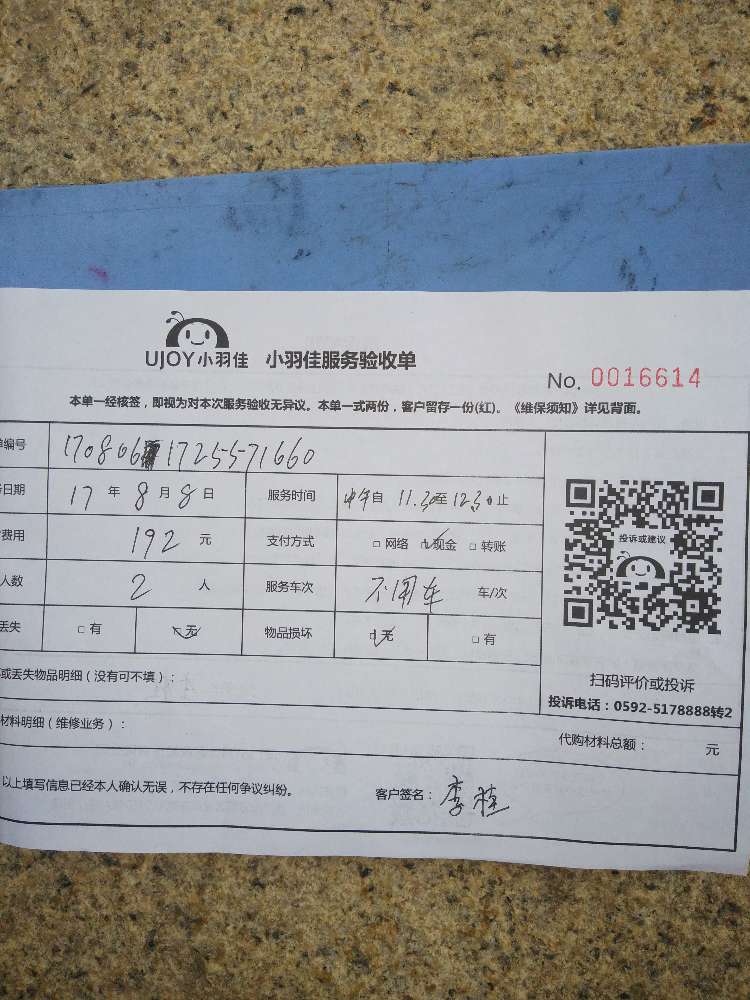 UJOY小羽佳 小羽佳服务验收单
No. 0016614
本单一经核签，即视为对本次服务验收无异议。本单一式两份，客户留存一份(红)。《维保须知》详见背面。
单编号 170806 17255-71660
日期 17 年 8 月 8 日 服务时间 中午自 11.30至12.30止
费用 192 元 支付方式 □ 网络 □ 现金 □ 转账
人数 2 人 服务车次 不用车 车/次
丢失 □ 有 □ 无 物品损坏 □ 无 □ 有
投诉或建议
扫码评价或投诉
投诉电话：0592-5178888转2
或丢失物品明细（没有可不填）：
材料明细（维修业务）： 代购材料总额： 元
以上填写信息已经本人确认无误，不存在任何争议纠纷。 客户签名：李桂